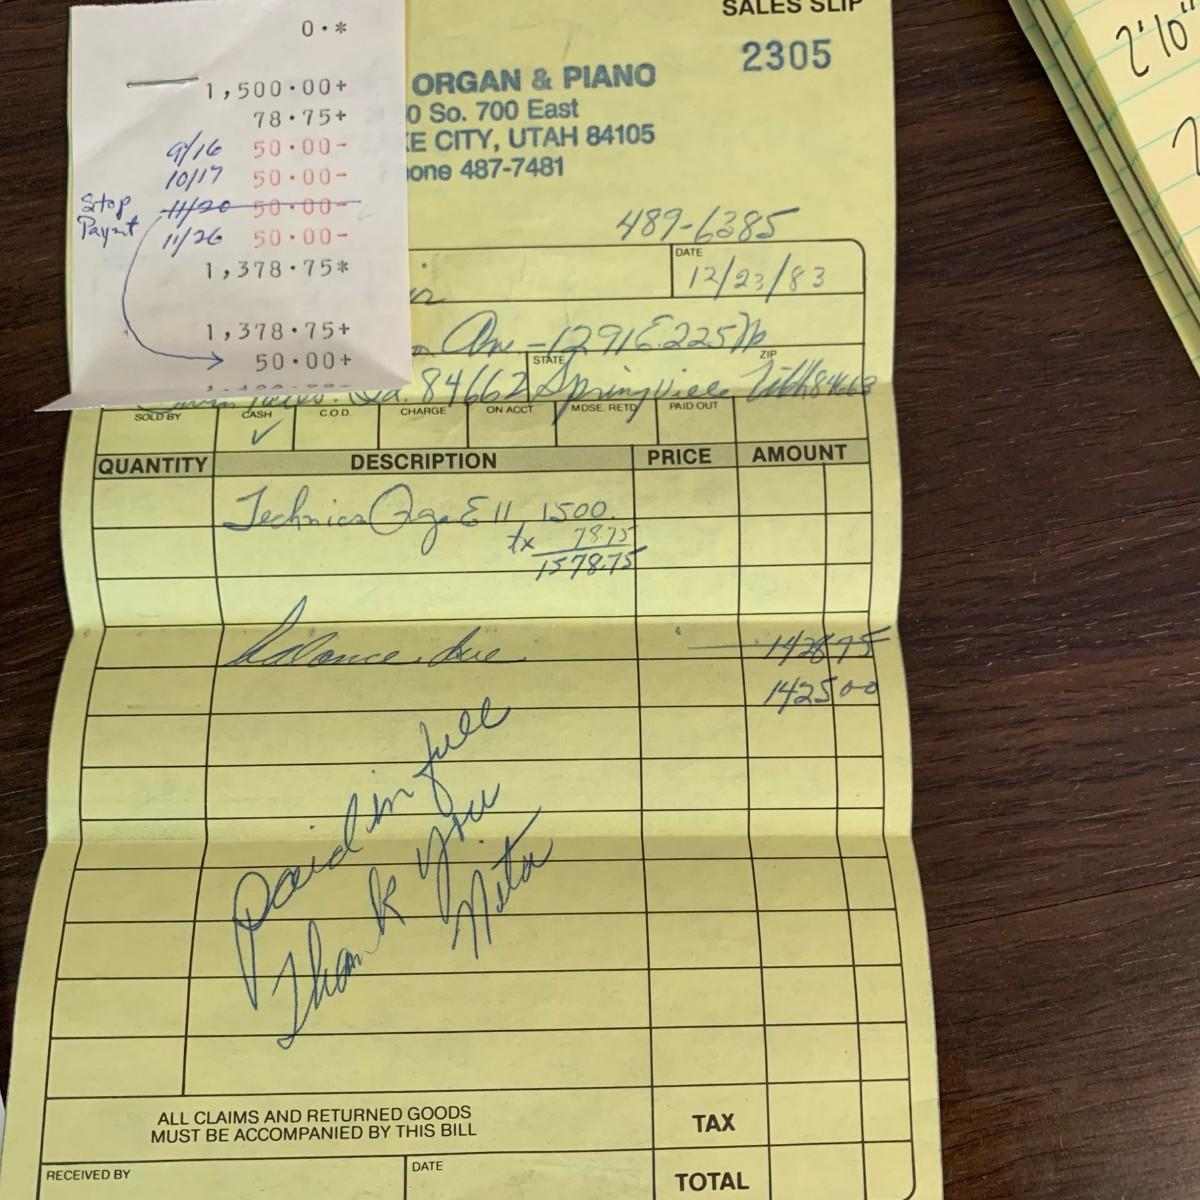 0.*
1,500.00+
78.75+
9/16 50.00-
10/17 50.00-
Stop Paymt
11/20 50.00-
11/26 50.00-
1,378.75*
1,378.75+
50.00+
SALES SLIP
2305
ORGAN & PIANO
0 So. 700 East
KE CITY, UTAH 84105
one 487-7481
489-6385
DATE
12/23/83
Ave - 1291 E. 225 No
STATE ZIP
84662 Springville Utah 84663
SOLD BY CASH C.O.D. CHARGE ON ACCT MDSE. RETD. PAID OUT
✓
QUANTITY DESCRIPTION PRICE AMOUNT
Technics Org. E11 1500.
tx 78.75
1578.75
balance due 1428 75
1425 00
Paid in full
Thank you
Neta
ALL CLAIMS AND RETURNED GOODS
MUST BE ACCOMPANIED BY THIS BILL
TAX
RECEIVED BY DATE
TOTAL
2'10"